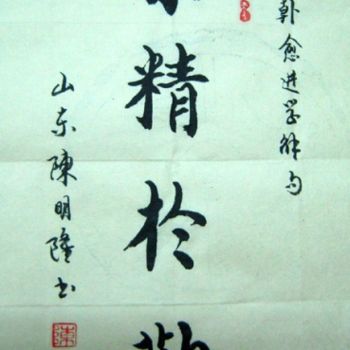 韩愈进学解句
精於勤
山东陳明隆书